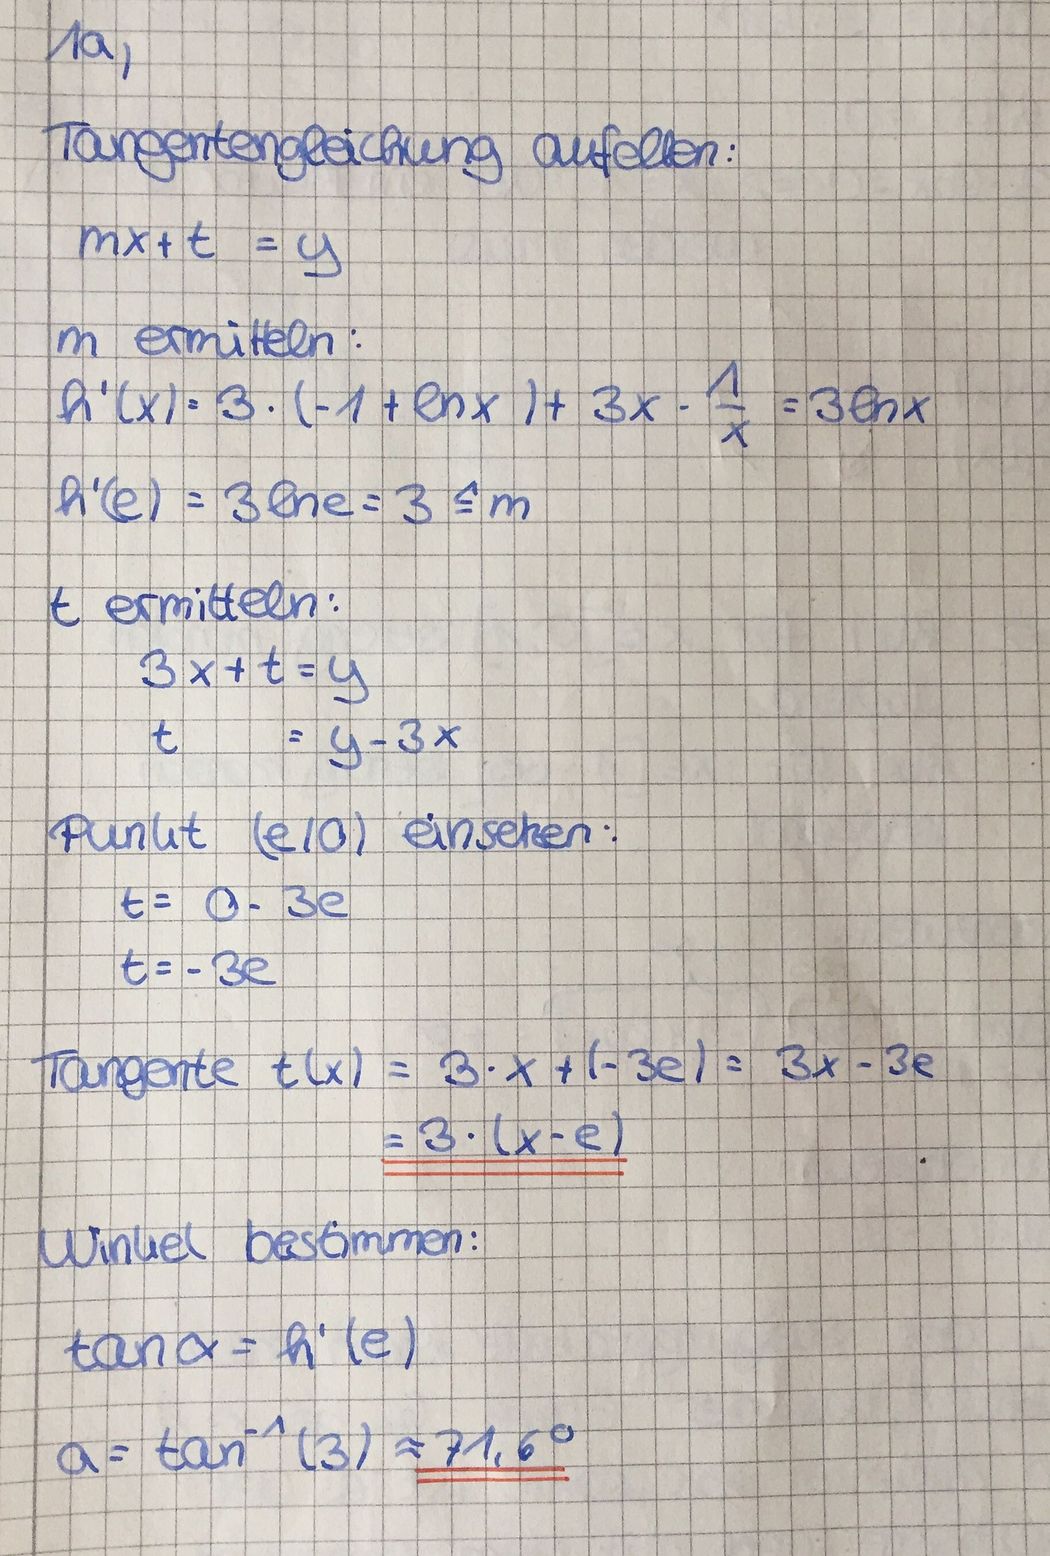 1a,
Tangentengleichung aufellen:
mx + t = y
m ermitteln:
h'(x) = 3 · (-1 + ln x) + 3x · 1/x = 3 ln x
h'(e) = 3 ln e = 3 ≙ m
t ermitteln:
3x + t = y
t = y - 3x
Punkt (e/0) einsetzen:
t = 0 - 3e
t = -3e
Tangente t(x) = 3 · x + (-3e) = 3x - 3e
= 3 · (x - e)
Winkel bestimmen:
tan α = h'(e)
α = tan⁻¹ (3) ≈ 71,6°